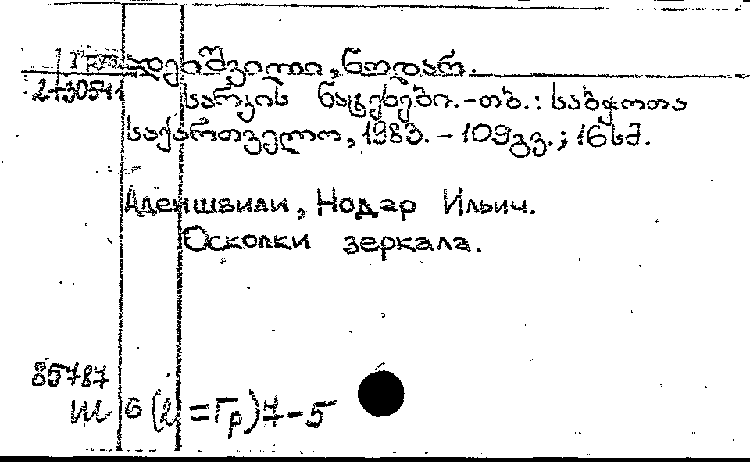 Груз ალეიშვილი, ნოდარ.
სარკის ნატეხები.-თბ.: საბჭოთა
საქართველო, 1983. - 109გვ.; 16სმ.
Алеишвили, Нодар Ильич.
Осколки зеркала.
85787
Ш6(2=Гр)7-5